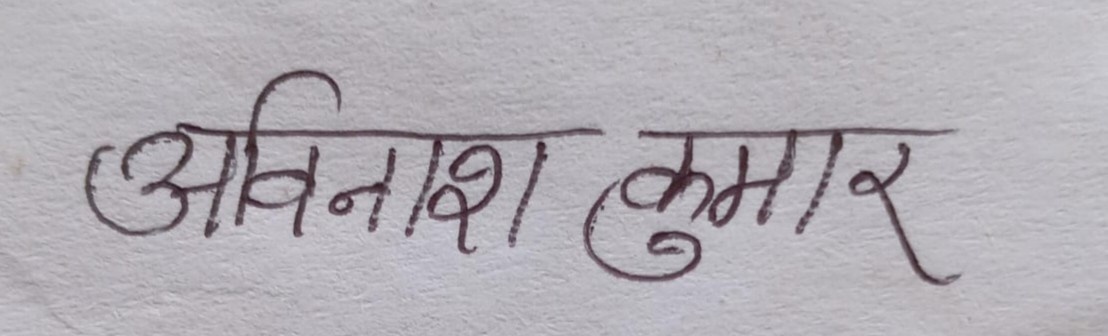 अविनाश कुमार